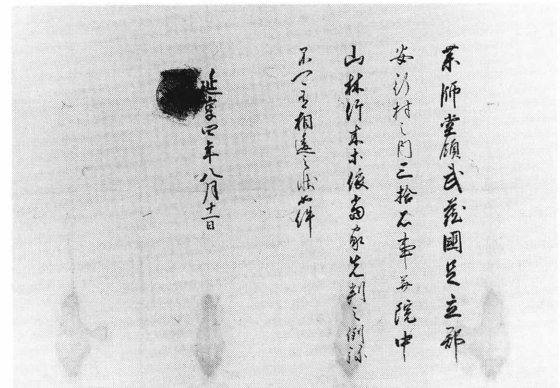 薬師堂領武蔵國足立郡
安行村之内三拾石事并院中
山林竹木等依當家先判之例弥
不可有相違之状如件
延享四年八月十一日